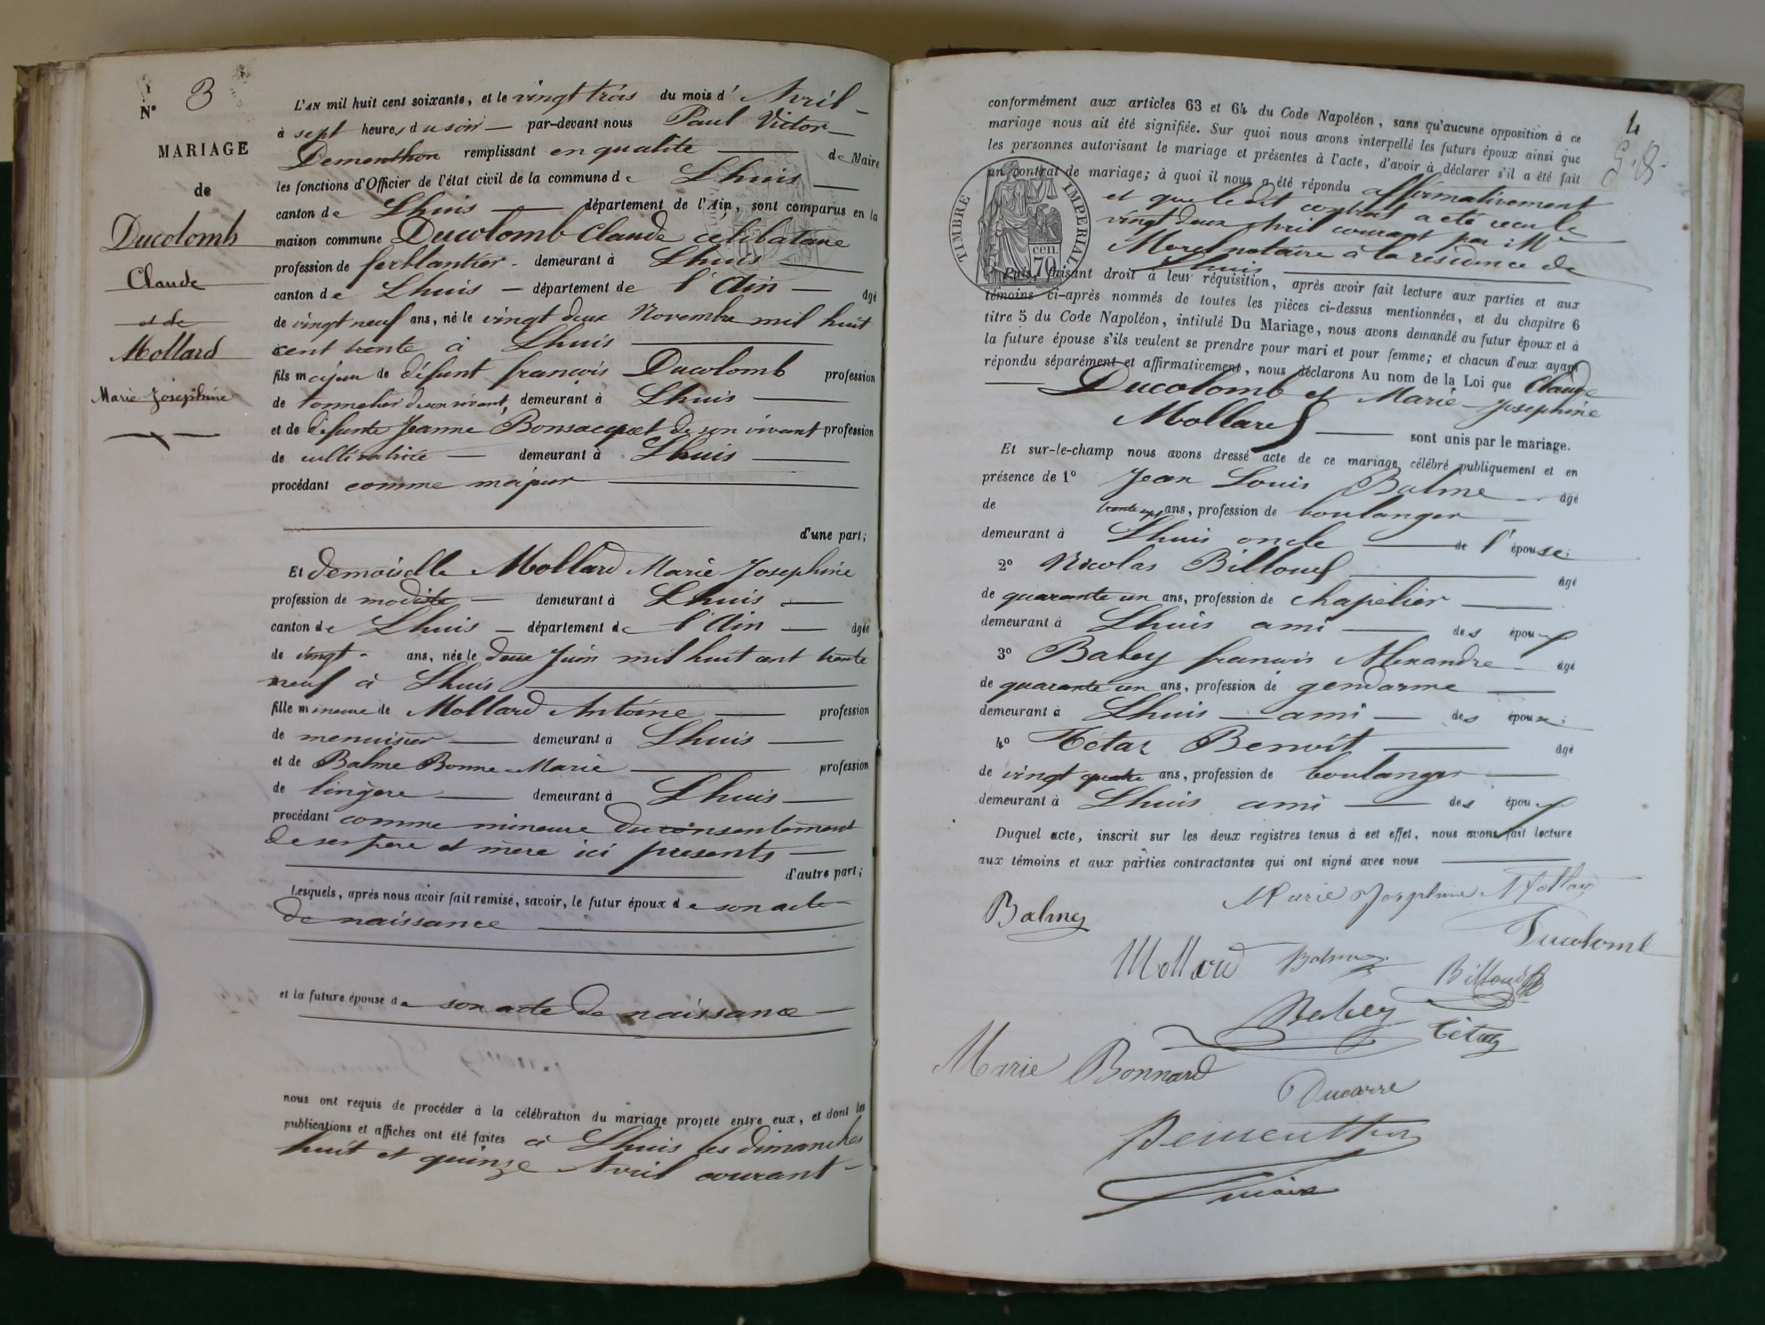 N° 3
MARIAGE
de
Ducolomb
Claude
et de
Mollard
Marie Joséphine
L'AN mil huit cent soixante, et le vingt trois du mois d'Avril
à sept heures du soir par-devant nous Paul Victor
Dementhon remplissant en qualité de Maire
les fonctions d'Officier de l'état civil de la commune de Lhuis
canton de Lhuis département de l'Ain, sont comparus en la
maison commune Ducolomb Claude célibataire
profession de ferblantier demeurant à Lhuis
canton de Lhuis département de l'Ain âgé
de vingt neuf ans, né le vingt deux Novembre mil huit
cent trente à Lhuis
fils majeur de défunt françois Ducolomb profession
de tonnelier de son vivant, demeurant à Lhuis
et de défunte Jeanne Bonsacquet de son vivant profession
de cultivatrice demeurant à Lhuis
procédant comme majeur
d'une part;
Et demoiselle Mollard Marie Josephine
profession de modiste demeurant à Lhuis
canton de Lhuis département de l'Ain âgée
de vingt ans, née le deux Juin mil huit cent trente
neuf à Lhuis
fille mineure de Mollard Antoine profession
de menuisier demeurant à Lhuis
et de Balme Bonne Marie profession
de lingère demeurant à Lhuis
procédant comme mineure du consentement
de ses père et mère ici présents
d'autre part;
Lesquels, après nous avoir fait remise, savoir, le futur époux de son acte
de naissance
et la future épouse de son acte de naissance
nous ont requis de procéder à la célébration du mariage projeté entre eux, et dont les
publications et affiches ont été faites à Lhuis les dimanches
huit et quinze Avril courant
4
conformément aux articles 63 et 64 du Code Napoléon, sans qu'aucune opposition à ce
mariage nous ait été signifiée. Sur quoi nous avons interpellé les futurs époux ainsi que
les personnes autorisant le mariage et présentes à l'acte, d'avoir à déclarer s'il a été fait
un contrat de mariage; à quoi il nous a été répondu affirmativement
et que le dit contrat a été recu le
vingt deux Avril courant par Me
Morel notaire à la résidence de
Lhuis
TIMBRE IMPERIAL
70 cen
Puis, faisant droit à leur réquisition, après avoir fait lecture aux parties et aux
témoins ci-après nommés de toutes les pièces ci-dessus mentionnées, et du chapitre 6
titre 5 du Code Napoléon, intitulé Du Mariage, nous avons demandé au futur époux et à
la future épouse s'ils veulent se prendre pour mari et pour femme; et chacun d'eux ayant
répondu séparément et affirmativement, nous déclarons Au nom de la Loi que Claude
Ducolomb et Marie Josephine
Mollard sont unis par le mariage.
Et sur-le-champ nous avons dressé acte de ce mariage célébré publiquement et en
présence de 1° Jean Louis Balme âgé
de ans, profession de boulanger
demeurant à Lhuis oncle de l'épouse
2° Nicolas Billoud âgé
de quarante un ans, profession de chapelier
demeurant à Lhuis ami des époux
3° Babey francois Alexandre âgé
de quarante un ans, profession de gendarme
demeurant à Lhuis ami des époux
4° Tétaz Benoit âgé
de vingt quatre ans, profession de boulanger
demeurant à Lhuis ami des époux
Duquel acte, inscrit sur les deux registres tenus à cet effet, nous avons fait lecture
aux témoins et aux parties contractantes qui ont signé avec nous
Marie Josephine Mollard
Balme
Ducolomb
Mollard Balme Billoud
Babey Tétaz
Marie Bonnard
Ducarre
Dementhon
maire